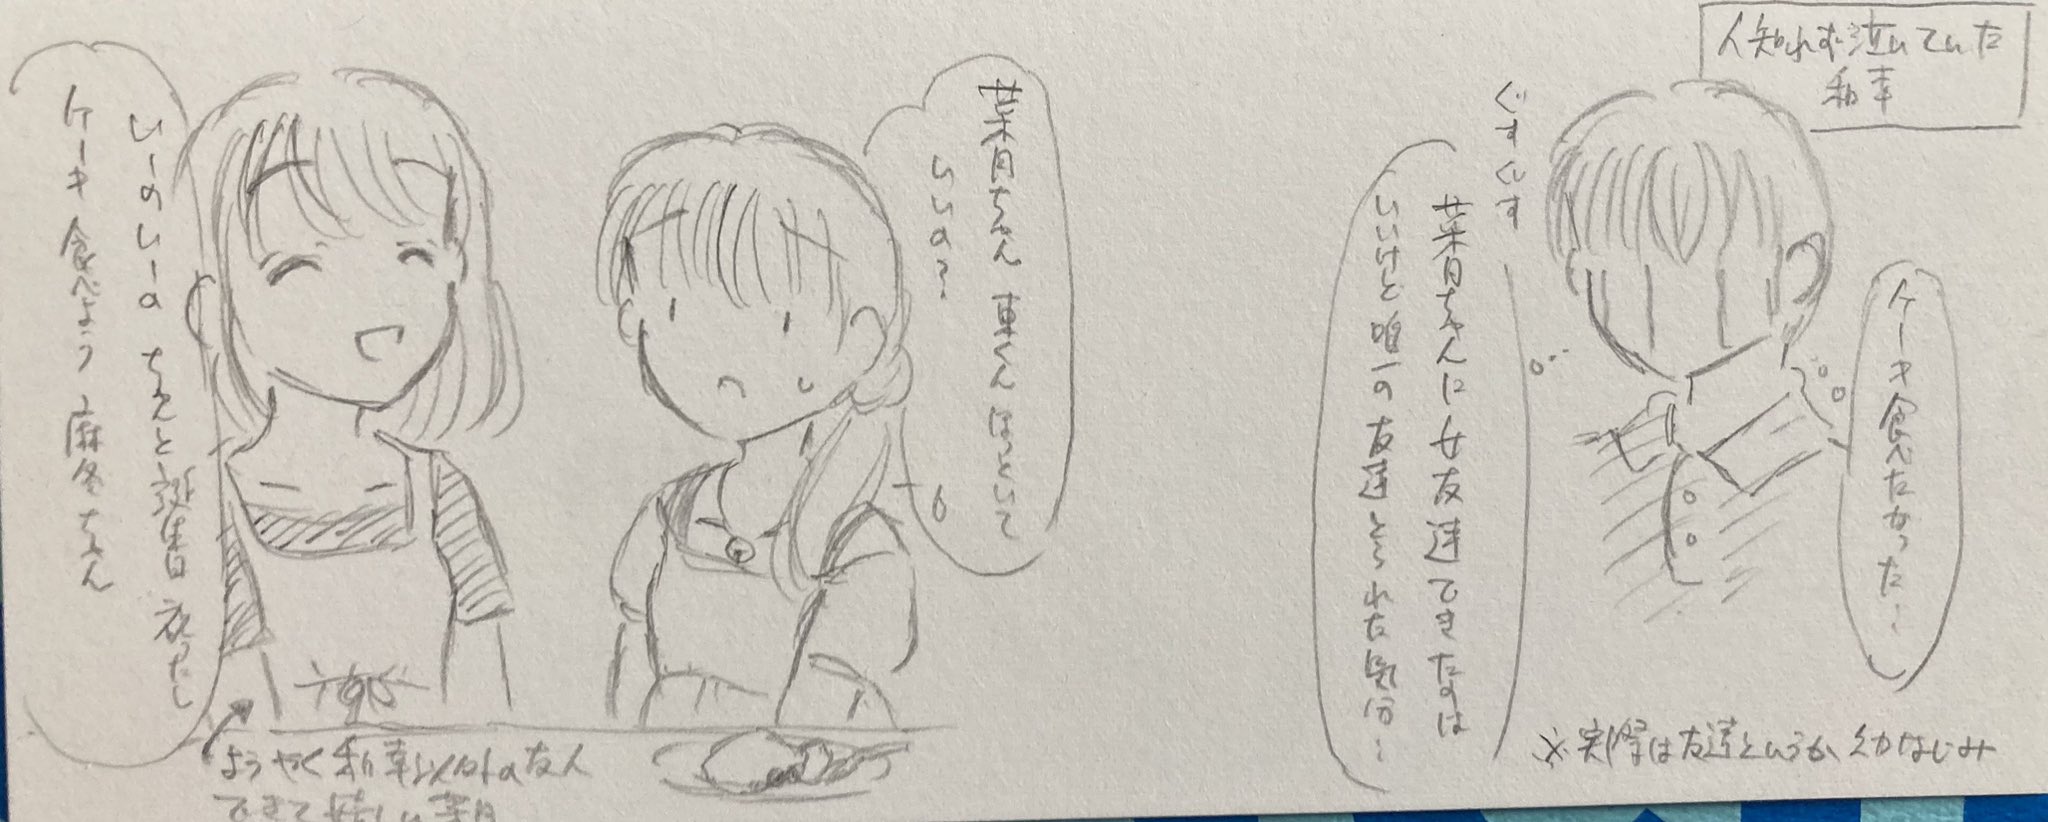 人知れず泣いていた
和幸
ケーキ食べたかった…
ぐすぐす
菜月ちゃんに女友達できたのは
いいけど唯一の友達とられた気分…
※実際は友達というか、幼なじみ
菜月ちゃん 東くんほっといて
いいの?
いーのいーの ちゃんと誕生日祝ったし
ケーキ食べよう 麻冬ちゃん
ようやく和幸以外の友人
できて嬉しい菜月